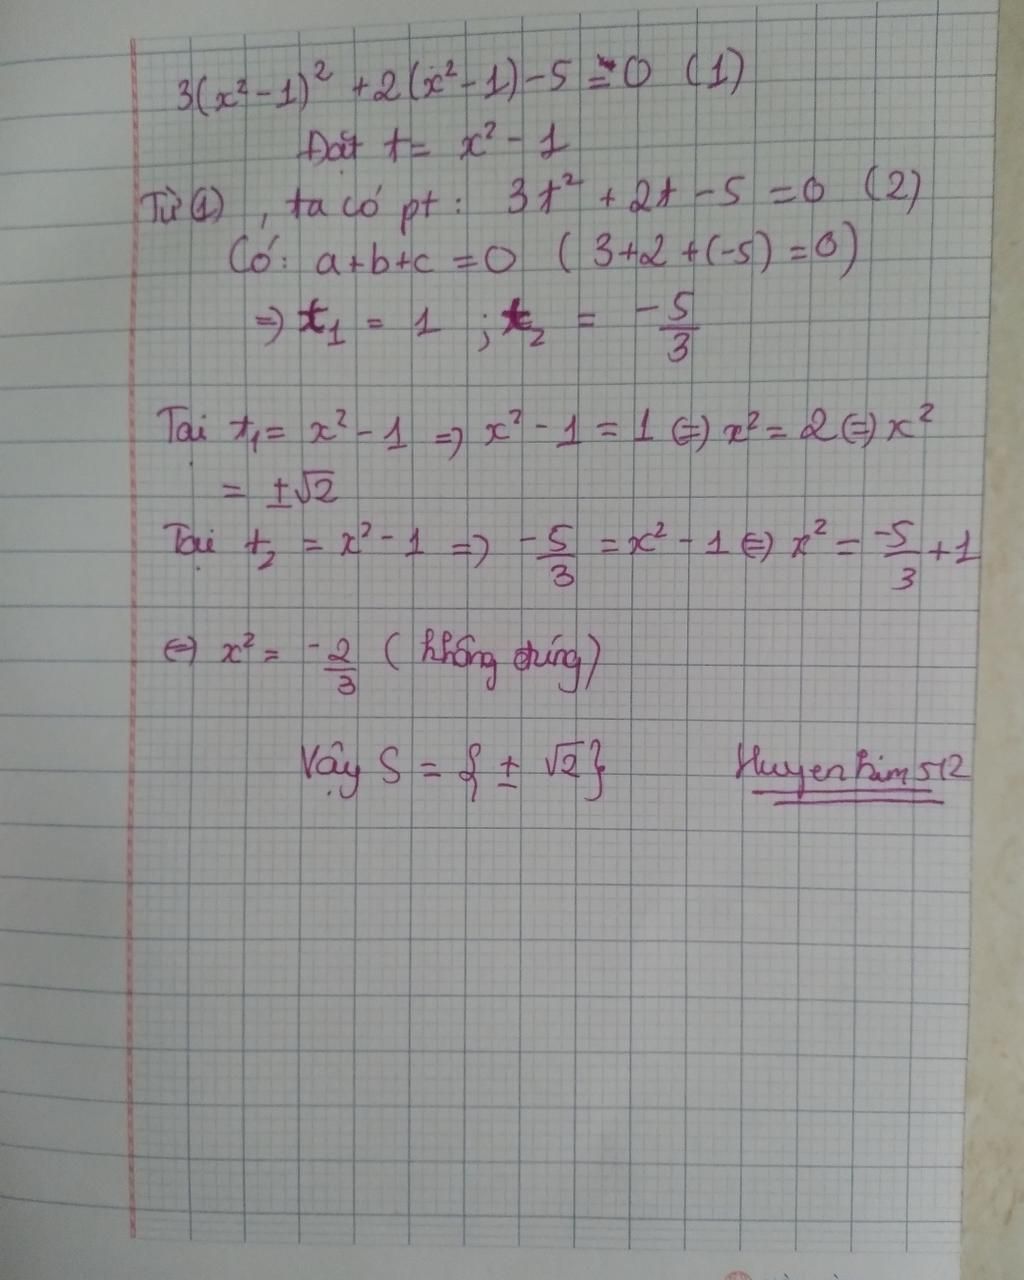 3(x² - 1)² + 2(x² - 1) - 5 = 0 (1)
Đặt t = x² - 1
Từ (1), ta có pt: 3t² + 2t - 5 = 0 (2)
Có: a+b+c = 0 (3+2+(-5) = 0)
=> t₁ = 1 ; t₂ = -5/3
Tại t₁ = x² - 1 => x² - 1 = 1 <=> x² = 2 <=> x²
= ±√2
Tại t₂ = x² - 1 => -5/3 = x² - 1 <=> x² = -5/3 + 1
<=> x² = -2/3 (không đúng)
Vậy S = {± √2}
Huyenkim512